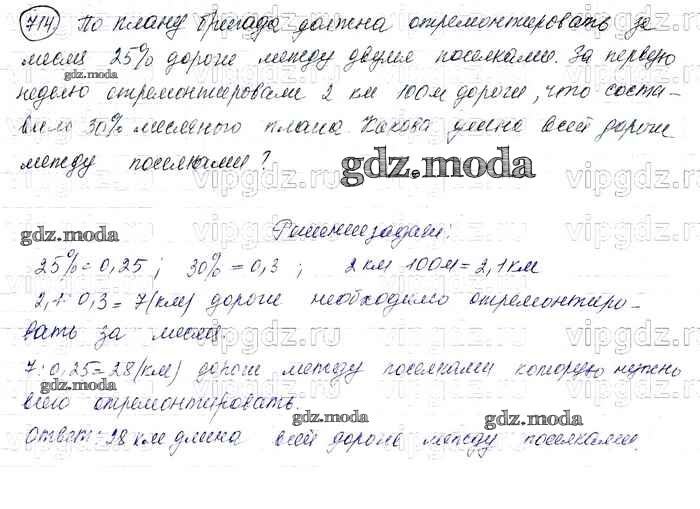 714. По плану бригада должна отремонтировать за
месяц 25% дороги между двумя поселками. За первую
gdz.moda
неделю отремонтировали 2 км 100м дороги, что соста-
вило 30% месячного плана. Какова длина всей дороги
между поселками?
gdz.moda
gdz.moda
Решение задачи:
25%=0,25 ; 30%=0,3 ; 2км 100м=2,1км
2,1:0,3=7(км) дороги необходимо отремонтиро-
вать за месяц.
7:0,25=28(км) дороги между поселками которую нужно
gdz.moda
всего отремонтировать.
gdz.moda
gdz.moda
Ответ: 28 км длина всей дороги между поселками.